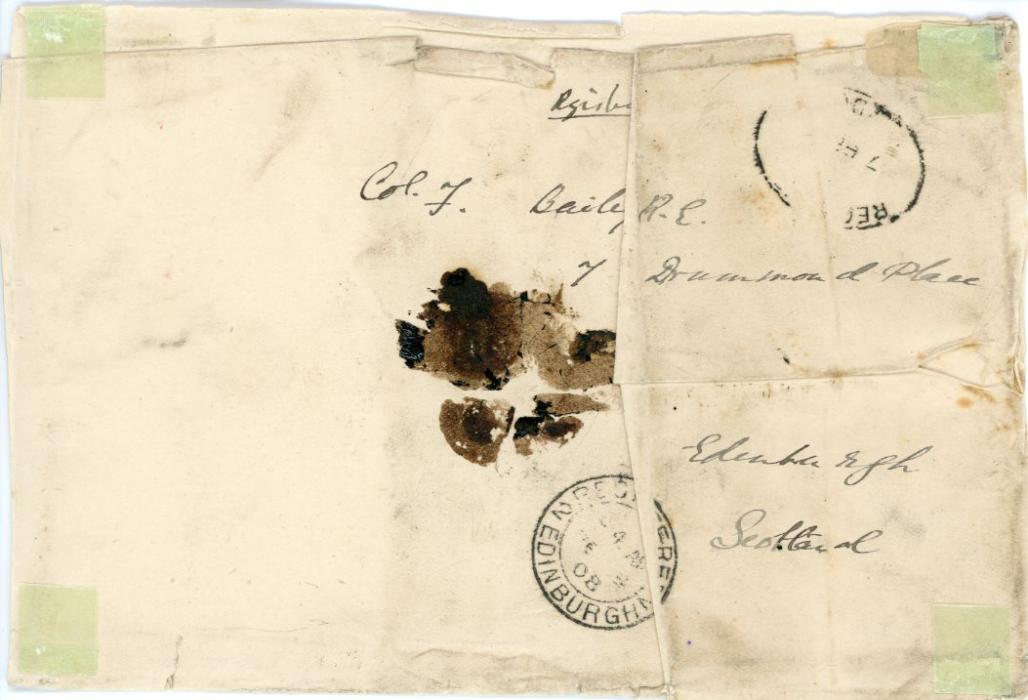 Col. F. Bailey R.E.
7 Drummond Place
Edinburgh
Scotland
REGISTERED
EDINBURGH
08
7
REG